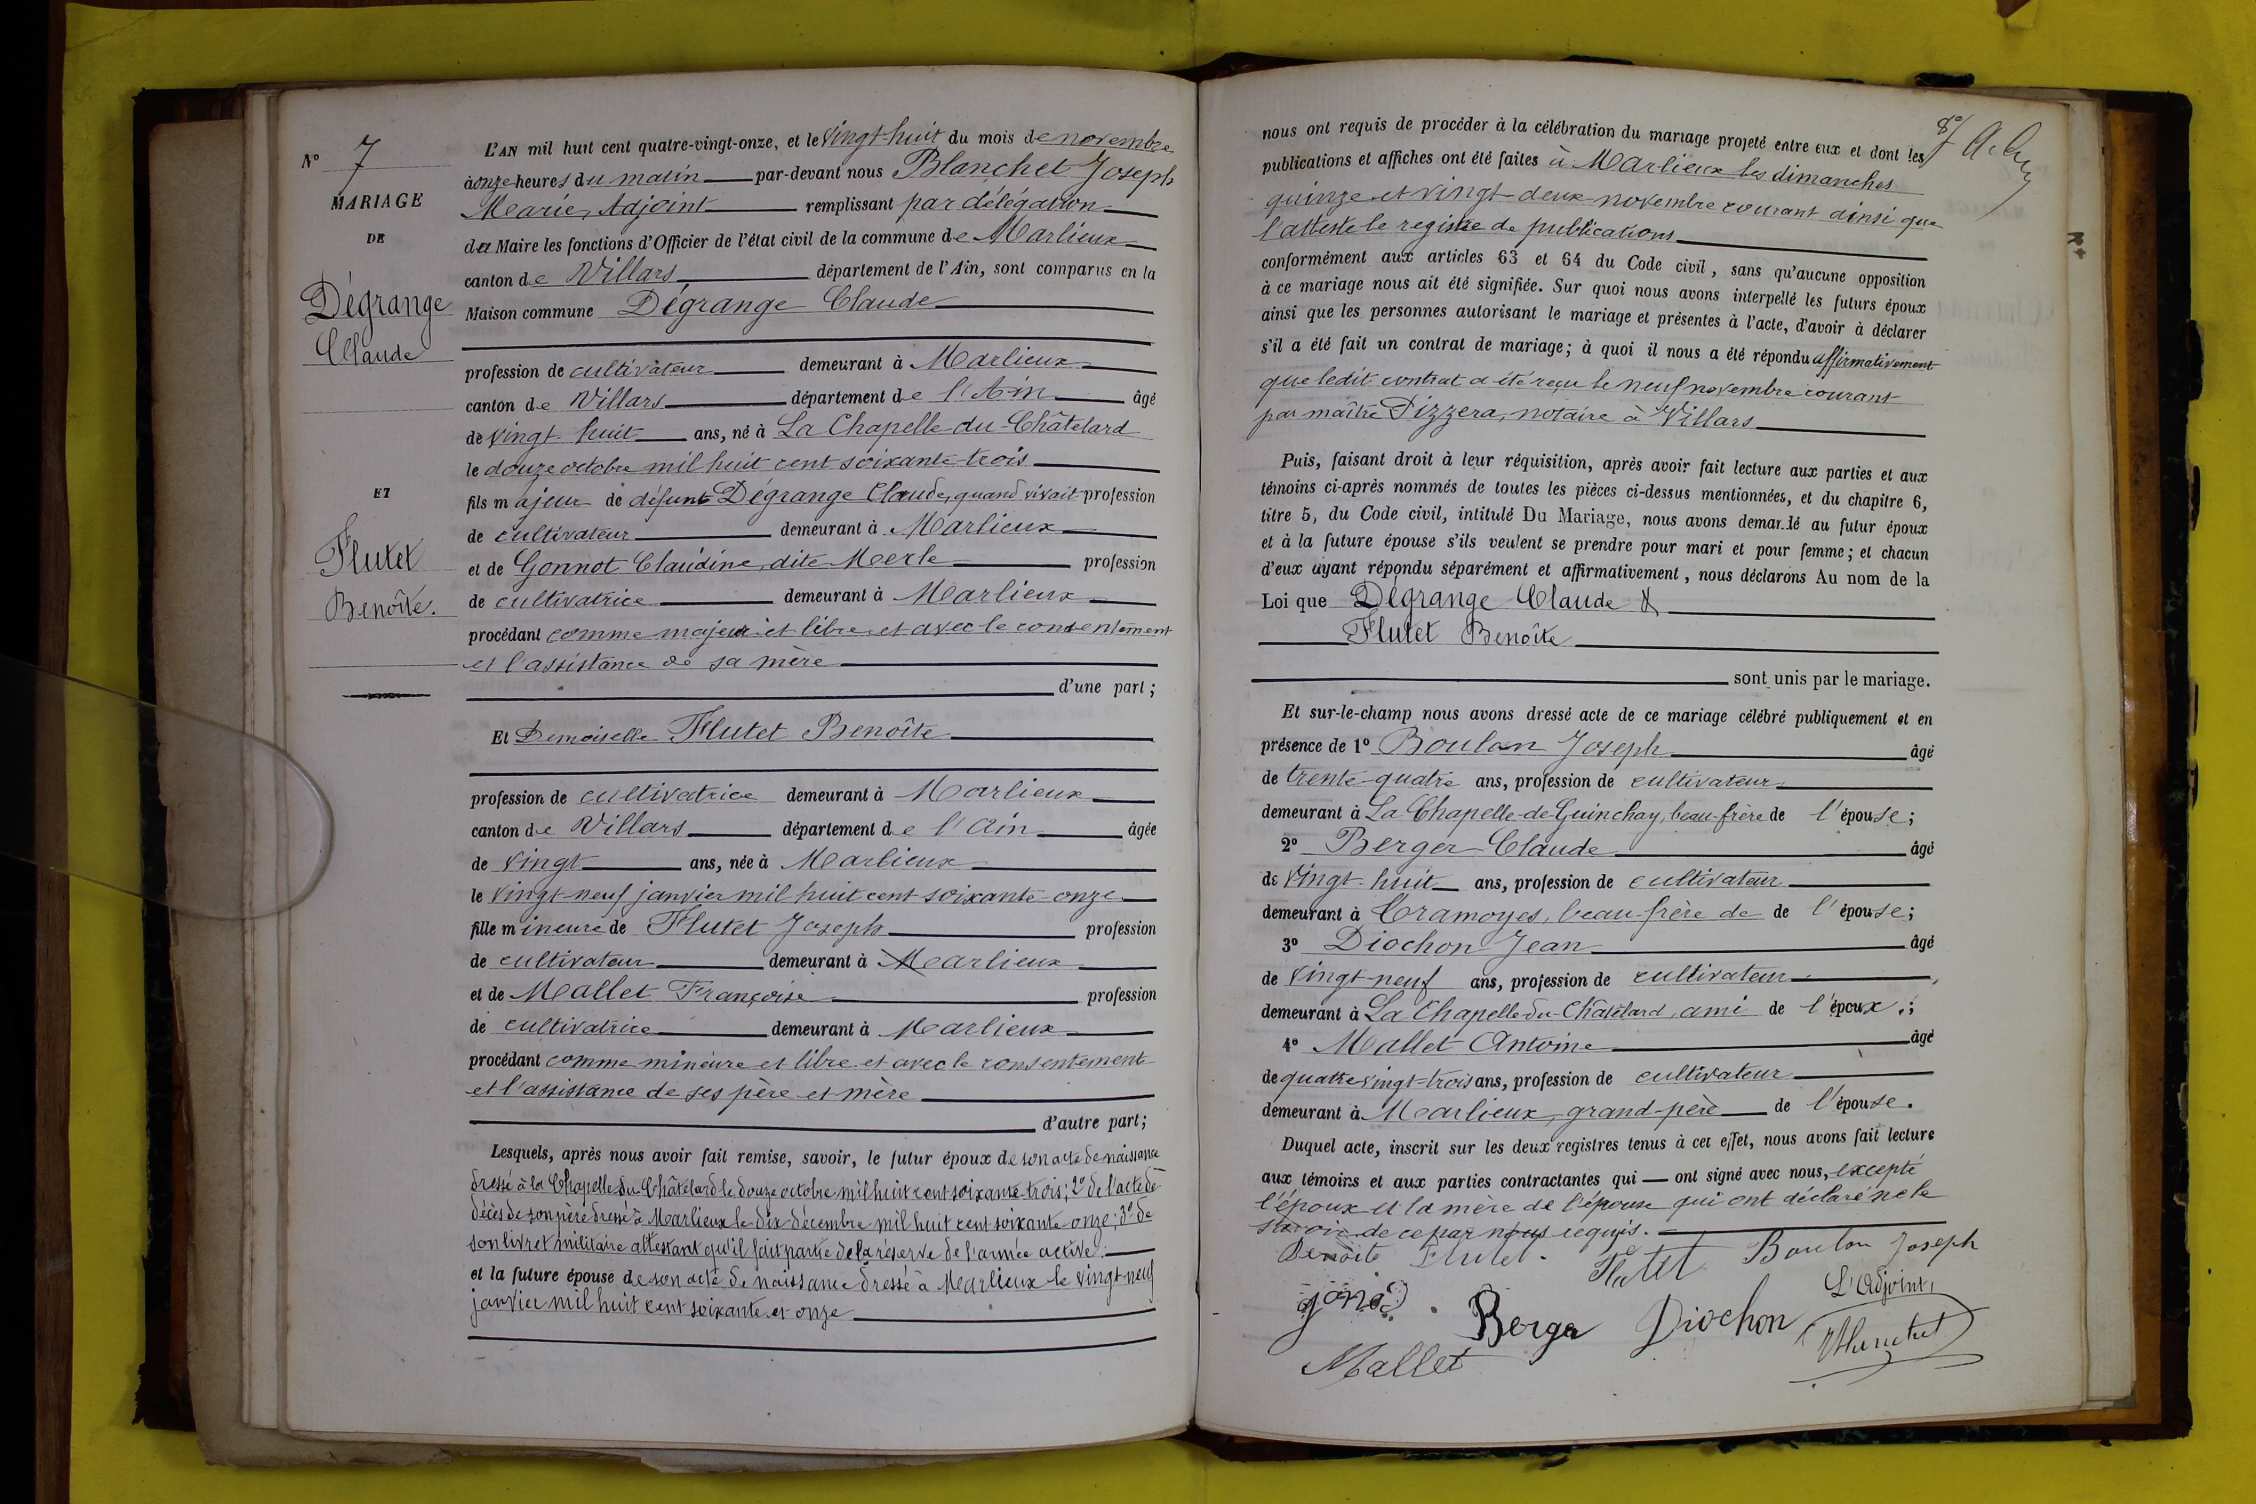 N° 7
MARIAGE
DE
Dégrange
Claude
ET
Flutet
Benoîte.
L'AN mil huit cent quatre-vingt-onze, et le vingt-huit du mois de novembre
à onze heures du matin par-devant nous Blanchet Joseph
Marie, Adjoint remplissant par délégation
du Maire les fonctions d'Officier de l'état civil de la commune de Marlieux
canton de Villars département de l'Ain, sont comparus en la
Maison commune Dégrange Claude
profession de cultivateur demeurant à Marlieux
canton de Villars département de l'Ain âgé
de vingt-huit ans, né à La Chapelle-du-Châtelard
le douze octobre mil huit cent soixante-trois
fils majeur de défunt Dégrange Claude, quand vivait profession
de cultivateur demeurant à Marlieux
et de Gonnot Claudine, dite Merle profession
de cultivatrice demeurant à Marlieux
procédant comme majeur et libre et avec le consentement
et l'assistance de sa mère
d'une part ;
Et Demoiselle Flutet Benoîte
profession de cultivatrice demeurant à Marlieux
canton de Villars département de l'Ain âgée
de vingt ans, née à Marlieux
le vingt-neuf janvier mil huit cent soixante-onze
fille mineure de Flutet Joseph profession
de cultivateur demeurant à Marlieux
et de Mallet Françoise profession
de cultivatrice demeurant à Marlieux
procédant comme mineure et libre et avec le consentement
et l'assistance de ses père et mère
d'autre part ;
Lesquels, après nous avoir fait remise, savoir, le futur époux de son acte de naissance
dressé à la Chapelle du Châtelard le douze octobre mil huit cent soixante-trois ; 2° de l'acte de
décès de son père dressé à Marlieux le dix décembre mil huit cent soixante-onze ; 3° de
son livret militaire attestant qu'il fait partie de la réserve de l'armée active.
et la future épouse de son acte de naissance dressé à Marlieux le vingt-neuf
janvier mil huit cent soixante et onze
nous ont requis de procéder à la célébration du mariage projeté entre eux et dont les
publications et affiches ont été faites à Marlieux les dimanches
quinze et vingt-deux novembre courant ainsi que
l'atteste le registre de publications
conformément aux articles 63 et 64 du Code civil, sans qu'aucune opposition
à ce mariage nous ait été signifiée. Sur quoi nous avons interpellé les futurs époux
ainsi que les personnes autorisant le mariage et présentes à l'acte, d'avoir à déclarer
s'il a été fait un contrat de mariage ; à quoi il nous a été répondu affirmativement
que ledit contrat a été reçu le neuf novembre courant
par maître Pizzera, notaire à Villars
Puis, faisant droit à leur réquisition, après avoir fait lecture aux parties et aux
témoins ci-après nommés de toutes les pièces ci-dessus mentionnées, et du chapitre 6,
titre 5, du Code civil, intitulé Du Mariage, nous avons demandé au futur époux
et à la future épouse s'ils veulent se prendre pour mari et pour femme ; et chacun
d'eux ayant répondu séparément et affirmativement, nous déclarons Au nom de la
Loi que Dégrange Claude &
Flutet Benoîte
sont unis par le mariage.
Et sur-le-champ nous avons dressé acte de ce mariage célébré publiquement et en
présence de 1° Boulon Joseph âgé
de trente-quatre ans, profession de cultivateur
demeurant à La Chapelle-de-Guinchay, beau-frère de l'épouse ;
2° Berger Claude âgé
de vingt-huit ans, profession de cultivateur
demeurant à Cramoyes, beau-frère de de l'épouse ;
3° Diochon Jean âgé
de vingt-neuf ans, profession de cultivateur
demeurant à La Chapelle-du-Châtelard, ami de l'époux ;
4° Mallet Antoine âgé
de quatre-vingt-trois ans, profession de cultivateur
demeurant à Marlieux, grand-père de l'épouse.
Duquel acte, inscrit sur les deux registres tenus à cet effet, nous avons fait lecture
aux témoins et aux parties contractantes qui ont signé avec nous, excepté
l'époux et la mère de l'épouse qui ont déclaré ne le
savoir de ce par nous requis.
Benoîte Flutet Flutet Boulon Joseph
L'Adjoint,
Berger Diochon Blanchet
Mallet